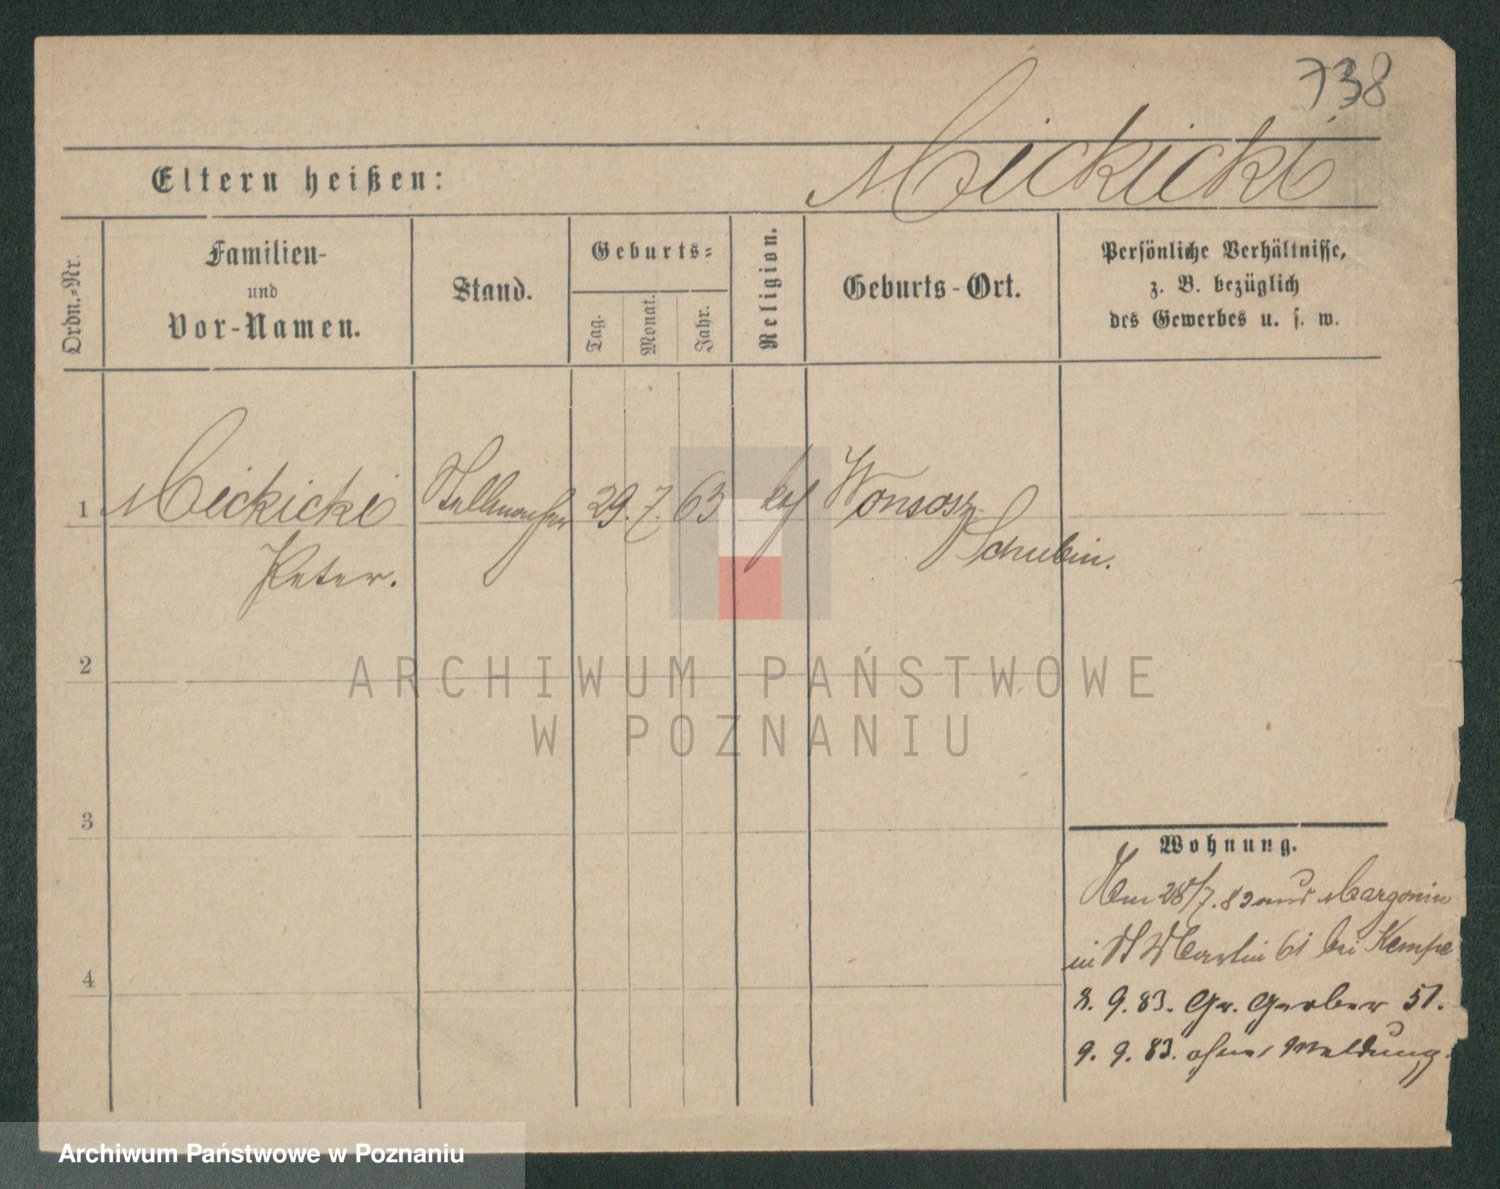 738
Mickicki
Eltern heißen:
Ordn.-Nr.
Familien-
und
Vor-Namen.
Stand.
Geburts-
Tag.
Monat.
Jahr.
Religion.
Geburts-Ort.
Persönliche Verhältnisse,
z. B. bezüglich
des Gewerbes u. s. w.
1 Mickicki Stellmacher 29. 7. 63 kath Wonsosz
Schubin.
Peter.
2
3
4
ARCHIWUM PAŃSTWOWE
W POZNANIU
Wohnung.
Am 28/7. 83 aus Margonin
in St Martin 61 bei Kempe
8. 9. 83. Gr. Gerber 51.
9. 9. 83. ohne Meldung.
Archiwum Państwowe w Poznaniu